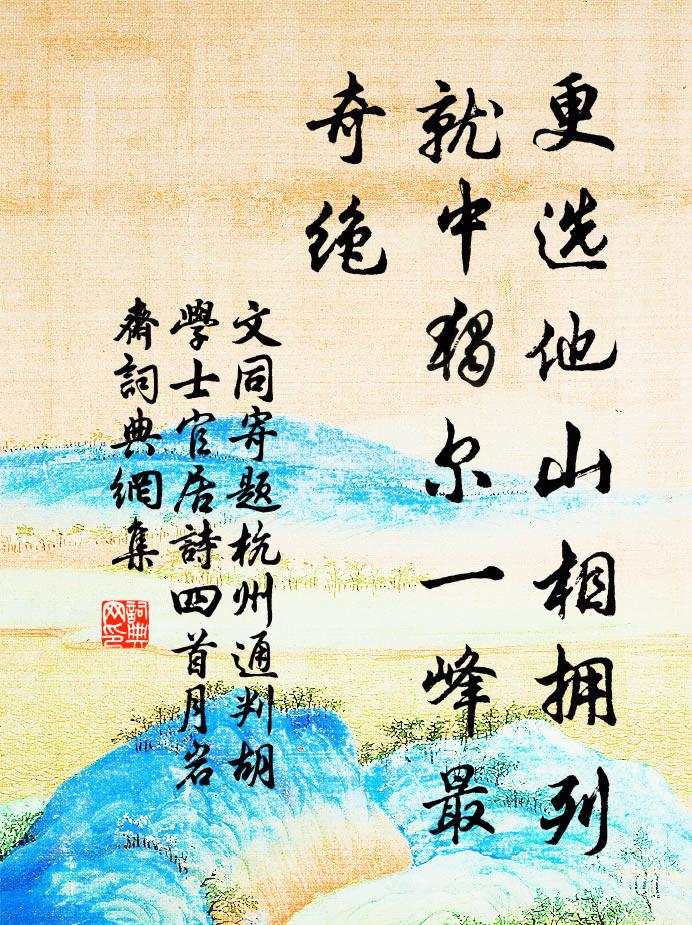 更选他山相拥列
就中独尔一峰最
奇绝
文同寄题杭州通判胡
學士官居詩四首月岩
齋詞典網集
詞典
网印